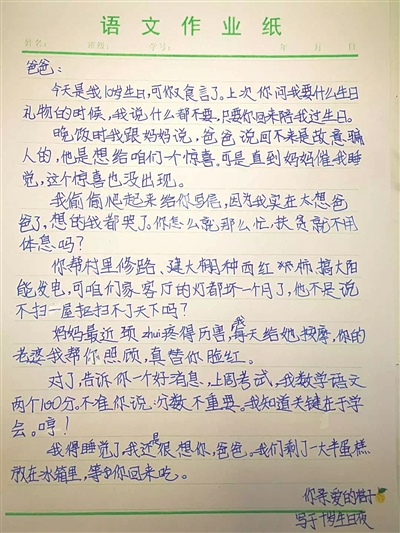 语文作业纸
姓名： 班级： 学号： 年 月 日
爸爸：
今天是我10岁生日，可你又食言了。上次你问我要什么生日
礼物的时候，我说什么都不要，只要你回来陪我过生日。
晚饭时我跟妈妈说，爸爸说回不来是故意骗
人的，他是想给咱们一个惊喜。可是直到妈妈催我睡
觉，这个惊喜也没出现。
我偷偷爬起来给你写信，因为我实在太想爸
爸了，想的我都哭了。你怎么就那么忙，扶贫就不用
休息吗？
你帮村里修路、建大棚、种西红柿，搞太阳
能发电，可咱们家客厅的灯都坏一个月了，也不是说
不扫一屋把扫不了天下吗？
妈妈最近颈zhuī疼得厉害，我每天给她按摩，你的
老婆我帮你照顾，真替你脸红。
对了，告诉你一个好消息，上周考试，我数学语文
两个100分。不准你说分数不重要。我知道关键在于学
会。哼！
我得睡觉了，我还是很想你，爸爸。我们剩了一大半蛋糕
放在冰箱里，等你回来吃。
你亲爱的桔子
写于十岁生日夜